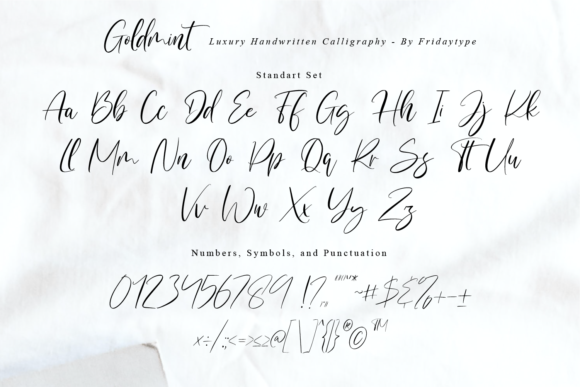 Goldmint Luxury Handwritten Calligraphy - By Fridaytype
Standart Set
Aa Bb Cc Dd Ee Ff Gg Hh Ii Jj Kk
Ll Mm Nn Oo Pp Qq Rr Ss Tt Uu
Vv Ww Xx Yy Zz
Numbers, Symbols, and Punctuation
0123456789 !? ~#$&%+-±
×÷/.:;<=>≤≥@[\]^{|}®©™